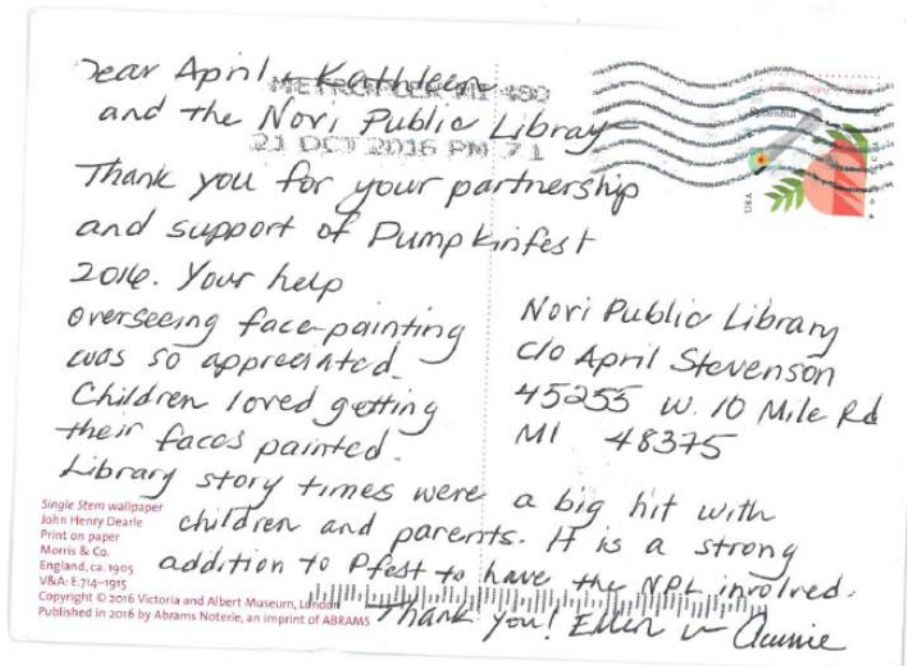 Dear April + Kathleen
METROPLEX MI 480
and the Novi Public Library
21 OCT 2016 PM 7 1
Thank you for your partnership
and support of Pumpkinfest
2016. Your help
overseeing face-painting
was so appreciated.
Children loved getting
their faces painted.
Library story times were a big hit with
children and parents. It is a strong
addition to Pfest to have the NPL involved.
Thank you! Ellen
USA
Novi Public Library
c/o April Stevenson
45255 W. 10 Mile Rd
MI 48375
Single Stem wallpaper
John Henry Dearle
Print on paper
Morris & Co.
England, ca. 1905
V&A: E.714–1915
Copyright © 2016 Victoria and Albert Museum, London
Published in 2016 by Abrams Noterie, an imprint of ABRAMS